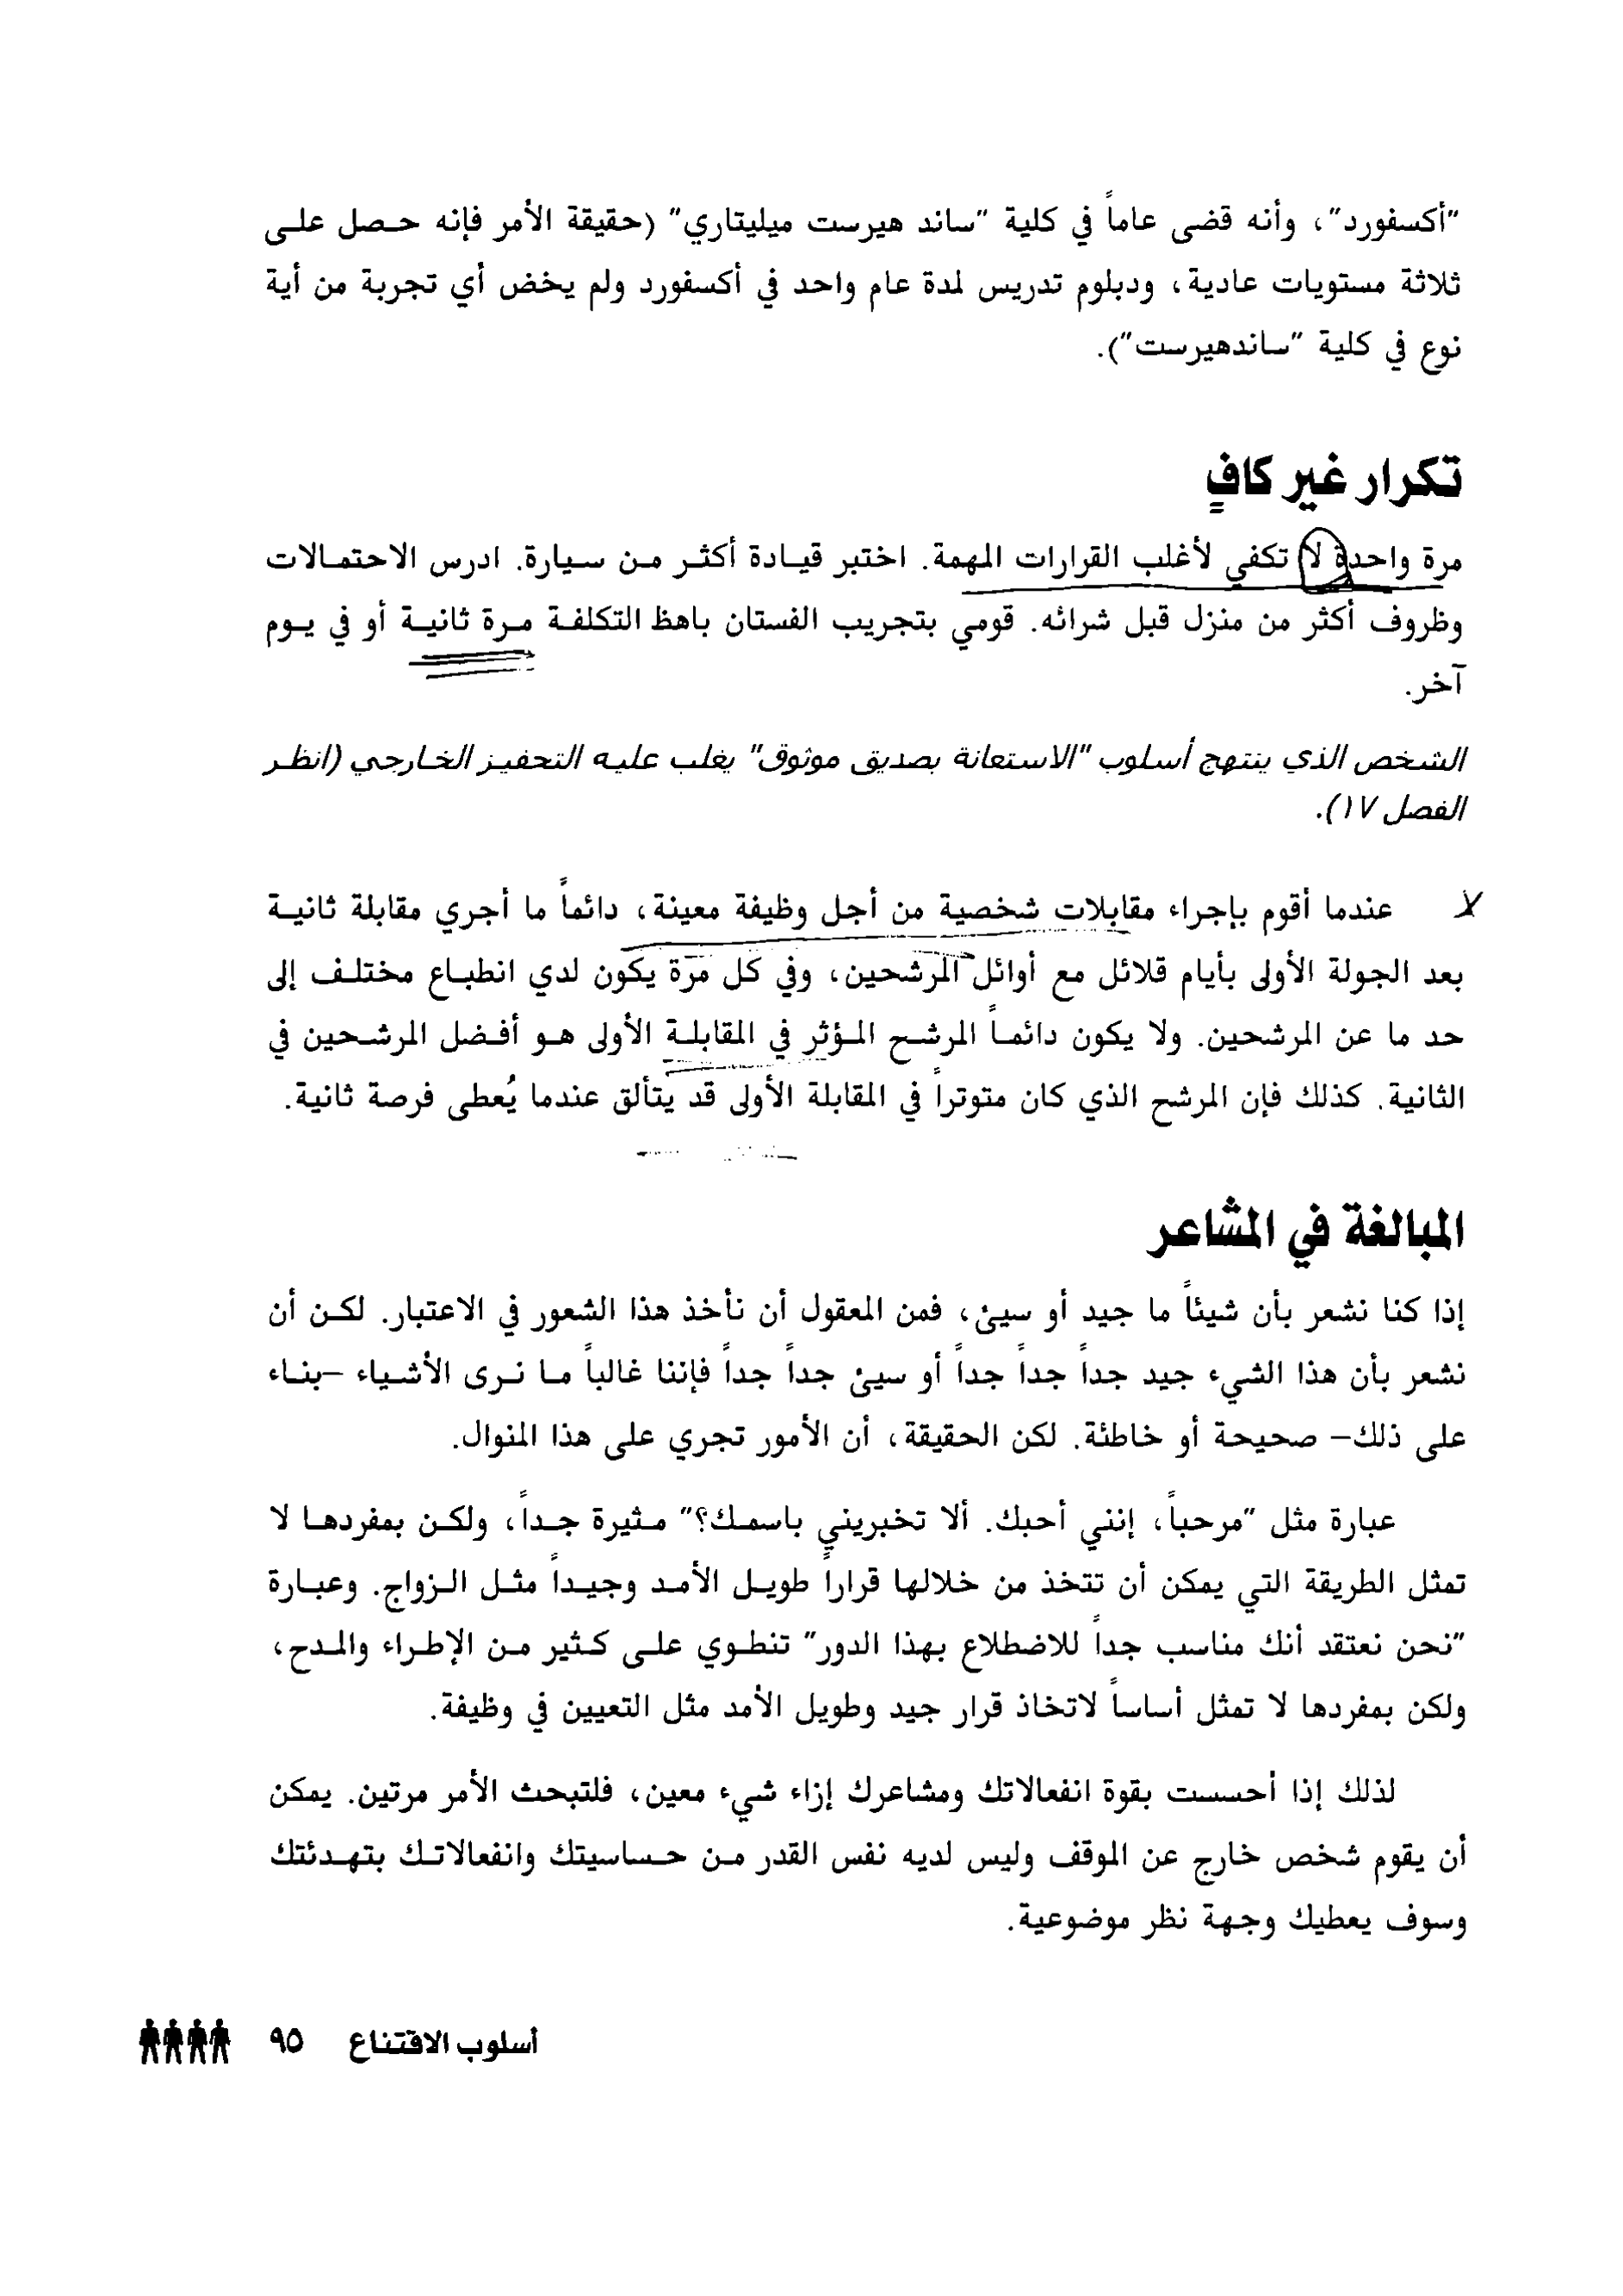 "أكسفورد"، وأنه قضى عاماً في كلية "ساند هيرست ميليتاري" (حقيقة الأمر فإنه حصل على
ثلاثة مستويات عادية، ودبلوم تدريس لمدة عام واحد في أكسفورد ولم يخض أي تجربة من أية
نوع في كلية "ساندهيرست").
تكرار غير كافٍ
مرة واحدة لا تكفي لأغلب القرارات المهمة. اختبر قيادة أكثر من سيارة. ادرس الاحتمالات
وظروف أكثر من منزل قبل شرائه. قومي بتجريب الفستان باهظ التكلفة مرة ثانية أو في يوم
آخر.
الشخص الذي ينتهج أسلوب "الاستعانة بصديق موثوق" يغلب عليه التحفيز الخارجي (انظر
الفصل ١٧).
عندما أقوم بإجراء مقابلات شخصية من أجل وظيفة معينة، دائماً ما أجري مقابلة ثانية
بعد الجولة الأولى بأيام قلائل مع أوائل المرشحين، وفي كل مرة يكون لدي انطباع مختلف إلى
حد ما عن المرشحين. ولا يكون دائماً المرشح المؤثر في المقابلة الأولى هو أفضل المرشحين في
الثانية. كذلك فإن المرشح الذي كان متوتراً في المقابلة الأولى قد يتألق عندما يُعطى فرصة ثانية.
المبالغة في المشاعر
إذا كنا نشعر بأن شيئاً ما جيد أو سيئ، فمن المعقول أن نأخذ هذا الشعور في الاعتبار. لكن أن
نشعر بأن هذا الشيء جيد جداً جداً جداً أو سيئ جداً جداً فإننا غالباً ما نرى الأشياء –بناء
على ذلك– صحيحة أو خاطئة. لكن الحقيقة، أن الأمور تجري على هذا المنوال.
عبارة مثل "مرحباً، إنني أحبك. ألا تخبريني باسمك؟" مثيرة جداً، ولكن بمفردها لا
تمثل الطريقة التي يمكن أن تتخذ من خلالها قراراً طويل الأمد وجيداً مثل الزواج. وعبارة
"نحن نعتقد أنك مناسب جداً للاضطلاع بهذا الدور" تنطوي على كثير من الإطراء والمدح،
ولكن بمفردها لا تمثل أساساً لاتخاذ قرار جيد وطويل الأمد مثل التعيين في وظيفة.
لذلك إذا أحسست بقوة انفعالاتك ومشاعرك إزاء شيء معين، فلتبحث الأمر مرتين. يمكن
أن يقوم شخص خارج عن الموقف وليس لديه نفس القدر من حساسيتك وانفعالاتك بتهدئتك
وسوف يعطيك وجهة نظر موضوعية.
أسلوب الاقتناع ٩٥